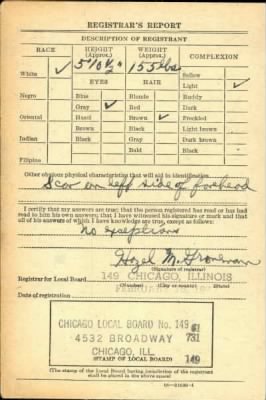 REGISTRAR'S REPORT
DESCRIPTION OF REGISTRANT
RACE HEIGHT (Approx.) WEIGHT (Approx.) COMPLEXION
5' 10 1/2" 155 lbs
White ✓ Sallow
EYES HAIR Light ✓
Negro Blue Blonde Ruddy
Gray ✓ Red Dark
Oriental Hazel Brown ✓ Freckled
Brown Black Light brown
Indian Black Gray Dark brown
Bald Black
Filipino
Other obvious physical characteristics that will aid in identification
Scar on left side of forehead
I certify that my answers are true; that the person registered has read or has had
read to him his own answers; that I have witnessed his signature or mark and that
all of his answers of which I have knowledge are true, except as follows:
no exceptions
Hazel M.
(Signature of registrar)
Registrar for Local Board 149 CHICAGO, ILLINOIS
(Number) (City or county)
Date of registration
CHICAGO LOCAL BOARD No. 149
4532 BROADWAY 731
CHICAGO, ILL. 149
(STAMP OF LOCAL BOARD)
(The stamp of the Local Board having jurisdiction of the registrant
shall be placed in the above space)